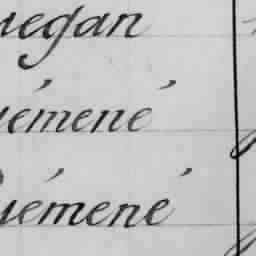 uegan
uémené
uémené